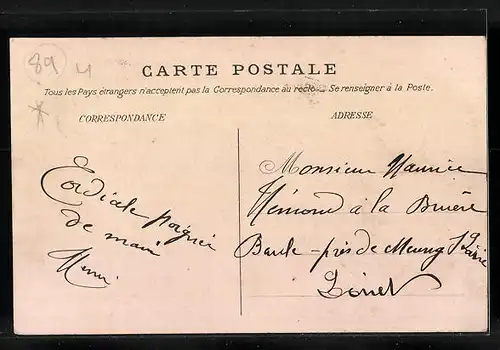 89 4
CARTE POSTALE
Tous les Pays étrangers n'acceptent pas la Correspondance au recto. — Se renseigner à la Poste.
CORRESPONDANCE
ADRESSE
Cordiale poignée
de main
Henri
Monsieur Maurice
Hémond à la Bruère
Baule - près de Meung s/Loire
Loiret